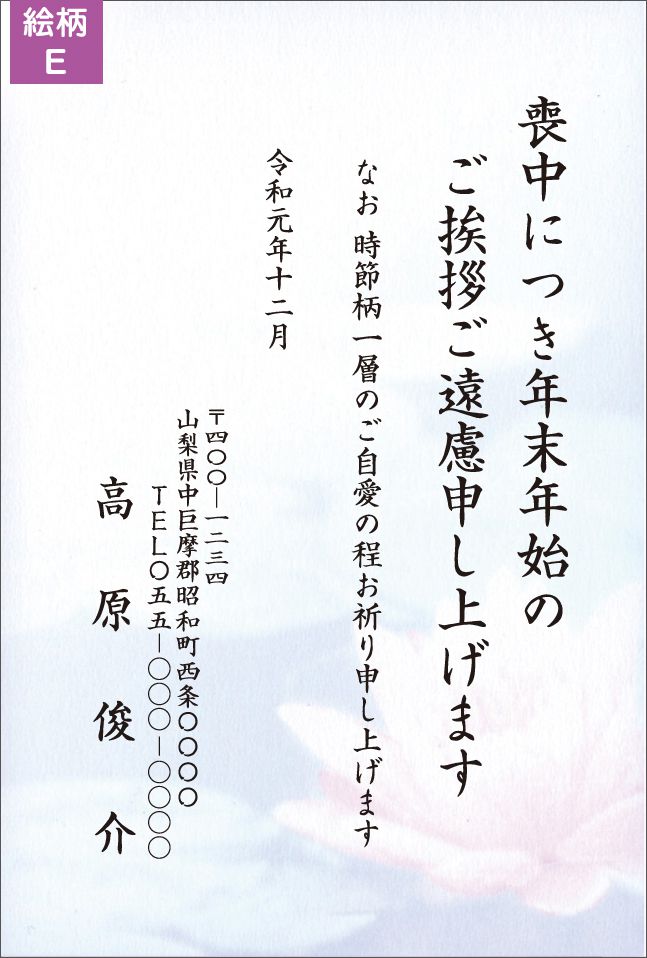 絵柄
E
喪中につき年末年始の
ご挨拶ご遠慮申し上げます
なお 時節柄一層のご自愛の程お祈り申し上げます
令和元年十二月
〒四〇〇―一二三四
山梨県中巨摩郡昭和町西条〇〇〇〇
TEL〇五五―〇〇〇―〇〇〇〇
高原俊介